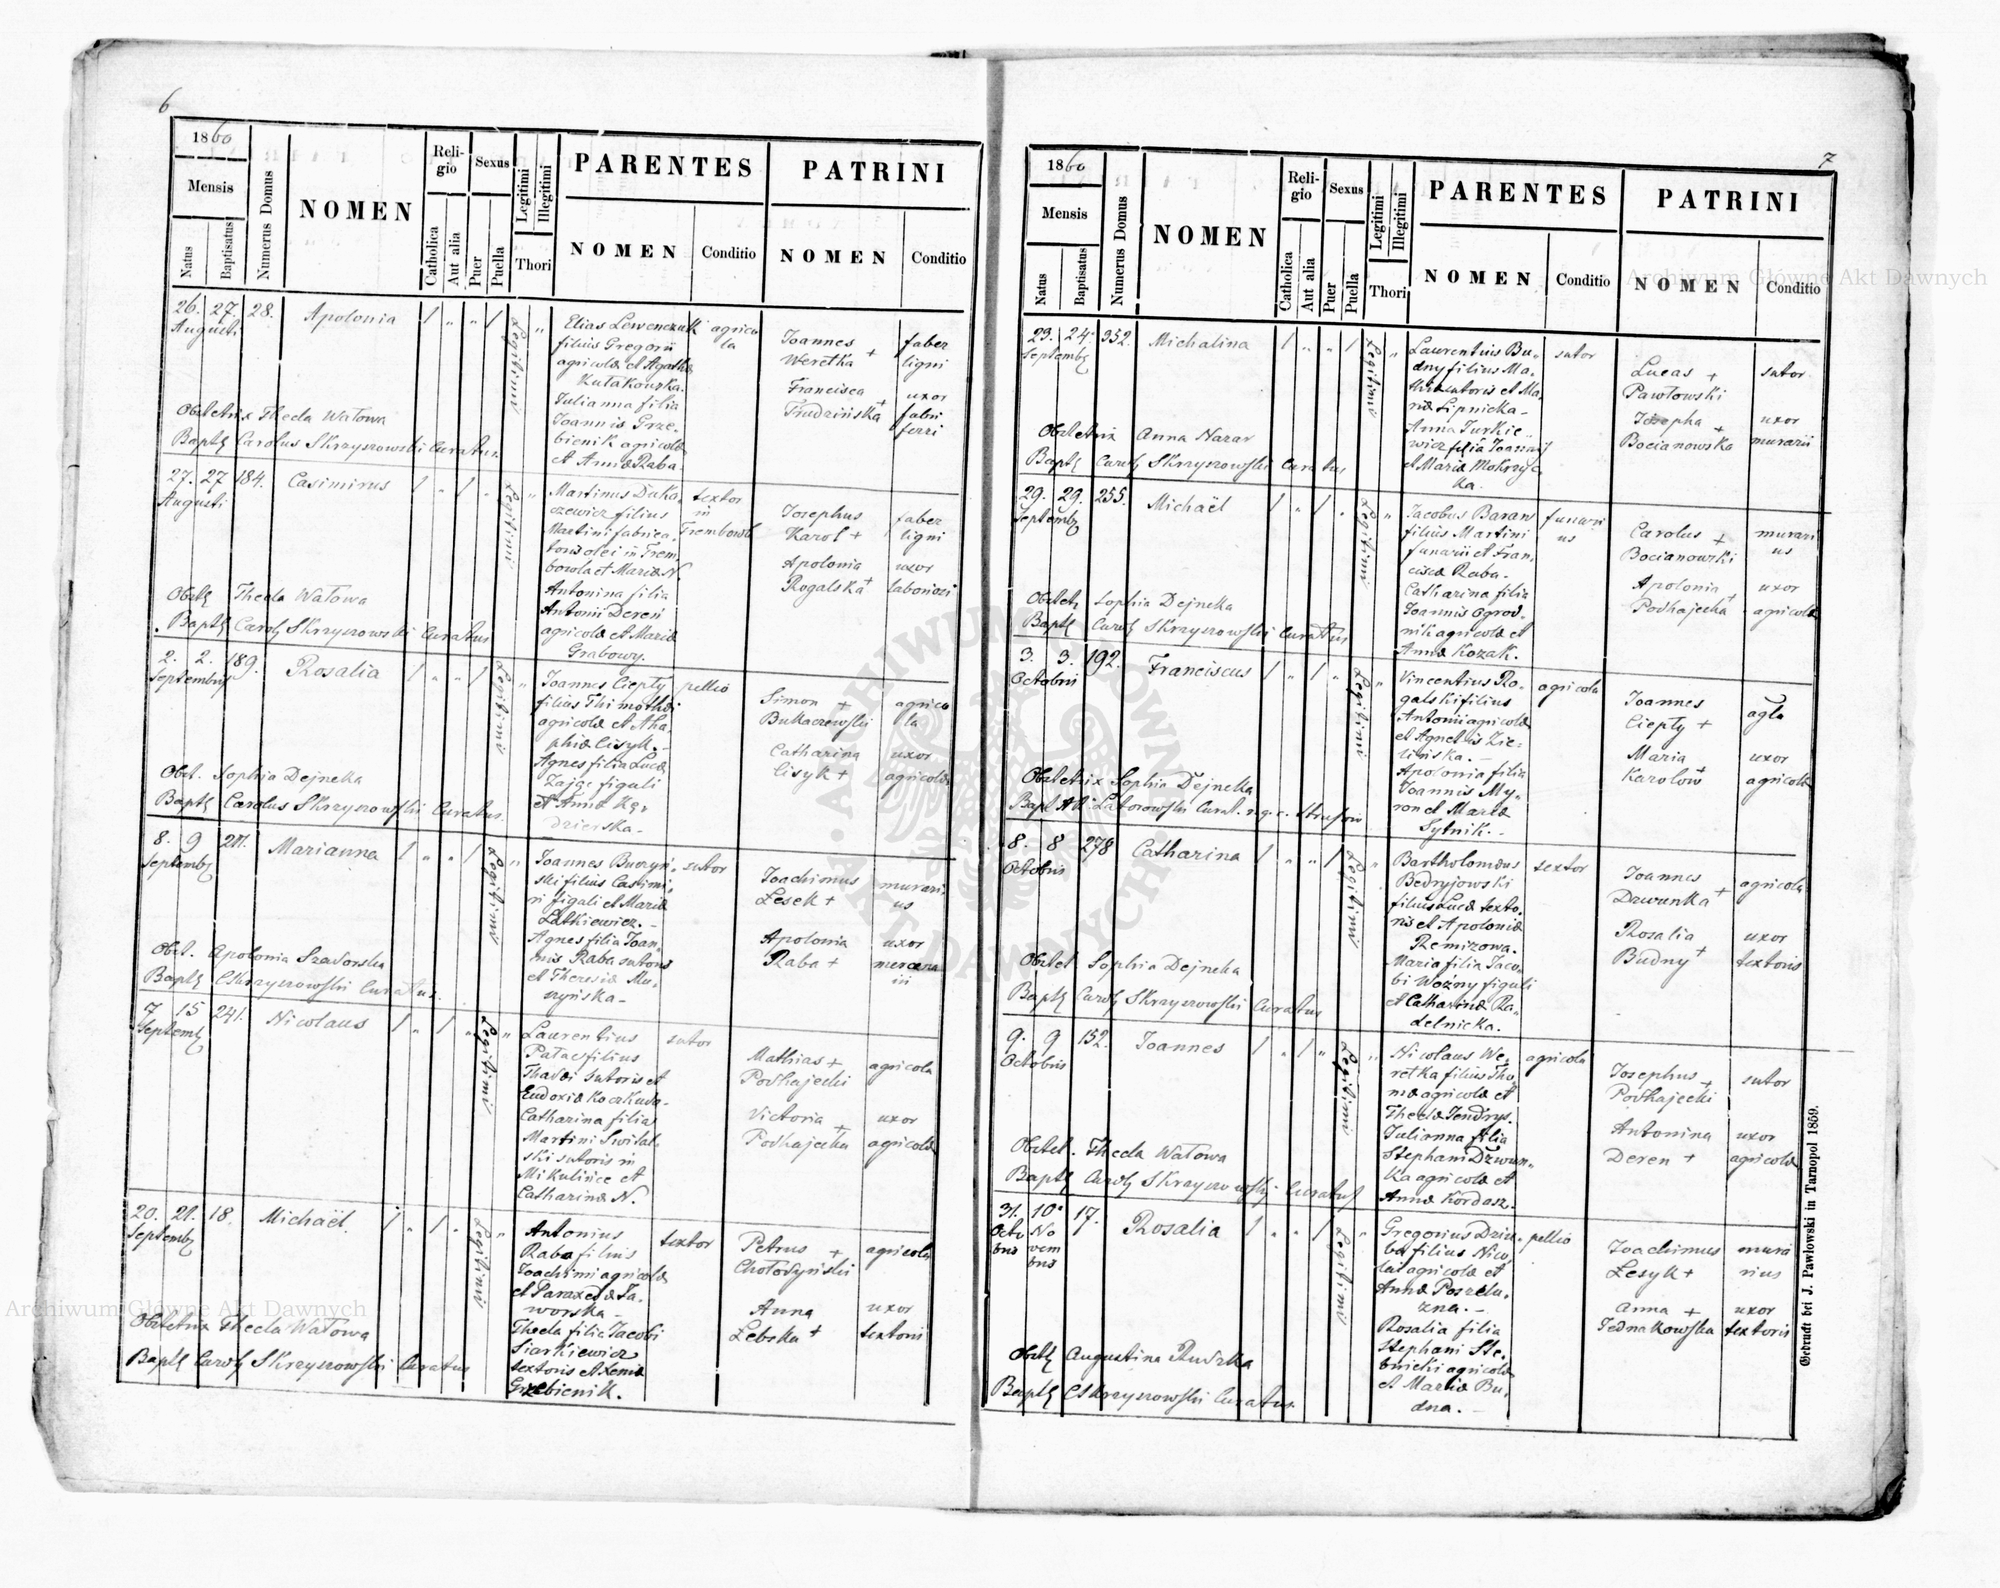 6
1860
Mensis
Natus
Baptisatus
Numerus Domus
NOMEN
Reli-
gio
Catholica
Aut alia
Sexus
Puer
Puella
Legitimi
Illegitimi
Thori
PARENTES
NOMEN
Conditio
PATRINI
NOMEN
Conditio
26. 27. 28. Apolonia
Augusti
Legitimi
Elias Lewenczuk
filius Gregorii
agricolæ et Agathæ
Kułakowska.
Julianna filia
Joannis Grze-
bienik agricolæ
et Annæ Raba.
agrico
la
Joannes
Weretka +
Francisca
Trudzińska +
faber
ligni
uxor
fabri
ferri
Obstetrix Thecla Watowa
Bapt Carolus Skrzyszowski Curatus.
27. 27 184. Casimirus
Augusti
Legitimi
Martinus Duka-
szewicz filius
Martini fabrica-
toris olei in Trem
bowla et Mariæ N.
Antonina filia
Antonii Dereń
agricolæ et Mariæ
Grabowy.
textor
in
Trembowl
Josephus
Karol +
Apolonia
Rogalska +
faber
ligni
uxor
laboriosi
Obstt Thecla Watowa
Bapt Carol Skrzyszowski Curatus
2. 2. 189. Rosalia
Septembris
Legitimi
Joannes Ciepły
filius Thimothei
agricolæ et Aha-
phiæ Cisyk. -
Agnes filia Lucæ
Zając figuli
et Annæ Kę-
dzierska -
pellio
Simon +
Bukaczewski
Catharina
Cisyk +
agrico
la
uxor
agricolæ
Obst. Sophia Dejneka
Bapt Carolus Skrzyszowski Curatus.
8. 9 211. Marianna
Septemb
Legitimi
Joannes Buczyń-
ski filius Casimi-
ri figuli et Mariæ
Latkiewicz. -
Agnes filia Joan-
nis Raba sutoris
et Theresiæ Mu-
szyńska -
sutor
Joachimus
Lesek +
Apolonia
Raba +
murari
us
uxor
mercena
rii
Obst. Apolonia Szaworska
Bapt CSkrzyszowski Curatus.
7 15 241. Nicolaus
Septemb
Legitimi
Laurentius
Pałac filius
Thadæi sutoris et
Eudoxiæ Koczkuda-
Catharina filia
Martini Śwital-
ski sutoris in
Mikulińce et
Catharinæ N.
sutor
Mathias +
Podhajecki
Victoria +
Podhajecka
agricola
uxor
agricolæ
20. 21. 18. Michaël
Septemb
Legitimi
Antonius
Raba filius
Joachimi agricolæ
et Paraxedæ Ja-
worska -
Thecla filia Jacobi
Siarkiewicz
textoris et Xeniæ
Grzebienik.
textor
Petrus +
Chołodyński
Anna
Łebska +
agricola
uxor
textoris
Obstetrix Thecla Watowa
Bapt Carol Skrzyszowski Curatus
7
1860
Mensis
Natus
Baptisatus
Numerus Domus
NOMEN
Reli-
gio
Catholica
Aut alia
Sexus
Puer
Puella
Legitimi
Illegitimi
Thori
PARENTES
NOMEN
Conditio
PATRINI
NOMEN
Conditio
23. 24. 352. Michalina
Septemb
Legitimi
Laurentius Bu-
dny filius Ma-
thiæ sutoris et Ma-
riæ Lipnicka -
Anna Turkie-
wicz filia Joannis
et Mariæ Mokrzyc
ka.
sutor
Lucas +
Pawłowski
Josepha +
Bocianowska
sutor
uxor
murarii
Obstetrix Anna Nazar
Bapt Carol Skrzyszowski Curatus
29. 29. 255. Michaël
Septemb
Legitimi
Jacobus Baran
filius Martini
funarii et Fran-
ciscæ Raba -
Catharina filia
Joannis Ogrod-
nik agricolæ et
Annæ Kozak.
funari
us
Carolus +
Bocianowski
Apolonia +
Podhajecka
murari
us
uxor
agricolæ
Obstetr Sophia Dejneka
Bapt Carol Skrzyszowski Curatus
3. 3. 192. Franciscus
Octobris
Legitimi
Vincentius Ro-
galski filius
Antonii agricolæ
et Agnetis Zie-
lińska. -
Apolonia filia
Joannis My-
ron et Mariæ
Sytnik. -
agricola
Joannes
Ciepły +
Maria +
Karolow
agla
uxor
agricolæ
Obstetrix Sophia Dejneka
8. 8 278 Catharina
Octobris
Legitimi
Bartholomæus
Bedryjowski
filius Lucæ texto-
ris et Apoloniæ
Remizowa.
Maria filia Jaco-
bi Woźny figuli
et Catharinæ Ra-
delnicka.
textor
Joannes
Dzwunka +
Rosalia
Budny +
agricola
uxor
textoris
Obstet Sophia Dejneka
Bapt Carol Skrzyszowski Curatus
9. 9 152. Joannes
Octobris
Legitimi
Nicolaus We-
retka filius Tho-
mæ agricolæ et
Theclæ Jendrys.
Julianna filia
Stephani Dzwun-
ka agricolæ et
Annæ Kordasz.
agricola
Josephus +
Podhajecki
Antonina
Deren +
sutor
uxor
agricolæ
Obstet. Thecla Watowa
Bapt Carol Skrzyszowski Curatus
31. 10. 17. Rosalia
Octo
bris
No
vem
bris
Legitimi
Gregorius Dziu-
ba filius Nico-
lai agricolæ et
Annæ Poszelu-
zna. -
Rosalia filia
Stephani Ste-
bnicki agricolæ
et Mariæ Bu-
dna. -
pellio
Joachimus
Lesyk +
Anna +
Jednakowska
mura
rius
uxor
textoris
Obstt Augustina Rudzka
Bapt CSkrzyszowski Curatus.
Gedruckt bei J. Pawlowski in Tarnopol 1859.
Archiwum Główne Akt Dawnych
Archiwum Główne Akt Dawnych
ARCHIWUM GŁÓWNE AKT DAWNYCH